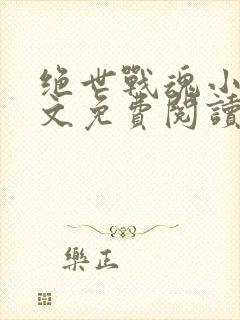 绝世戰魂小
文免費閱讀
樂正